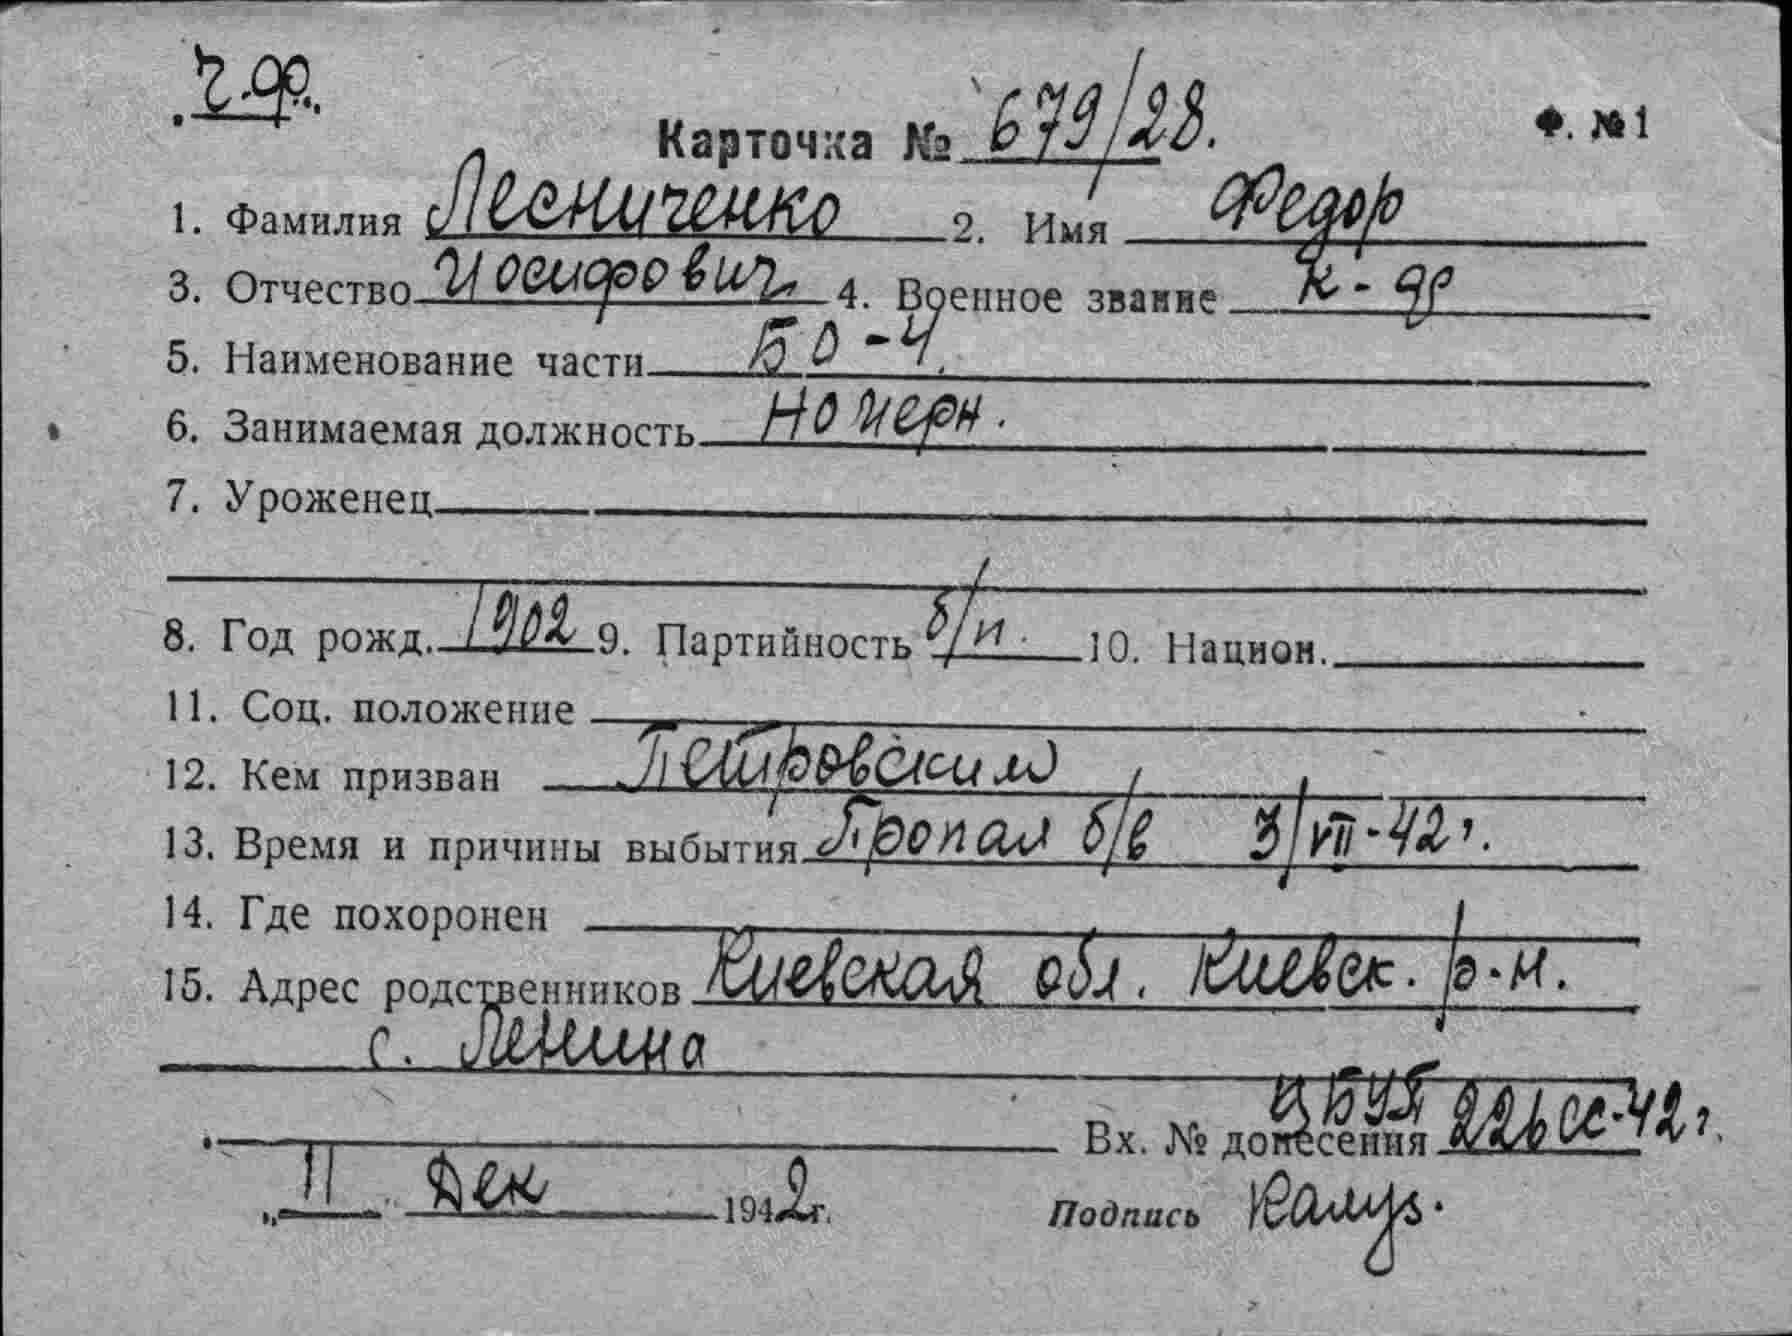 ч.ф.
Карточка № 679/28. Ф. №1
1. Фамилия Лесниченко 2. Имя Федор
3. Отчество Иосифович 4. Военное звание к-фр
5. Наименование части БО-4.
6. Занимаемая должность номерн.
7. Уроженец
8. Год рожд. 1902 9. Партийность б/п. 10. Национ.
11. Соц. положение
12. Кем призван Петровским
13. Время и причины выбытия Пропал б/в 3/VII-42г.
14. Где похоронен
15. Адрес родственников Киевская обл. Киевск. р-н.
с. Ленина
Вх. № донесения ЦБУП 226сс-42г.
„11 Дек 1942г. Подпись